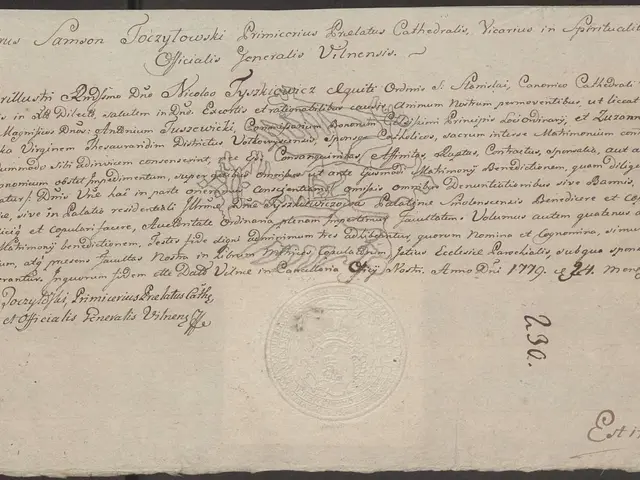 rus Samson Toczyłowski Primicerius Prælatus Cathedralis, Vicarius in Spiritualib
Officialis Generalis Vilnensis.
rillustri Rndssimo Dno Nicolao Tyszkiewicz Equiti Ordinis S. Stanislai, Canonico Cathedrali
is in Xto Dilecto, salutem in Dno. Excertis et rationabilibus causis Animum Nostrum permoventibus, ut liceat
Magnificos Dnos: Antonium Juszewicki, Commissarium Bonorum Principis Loci Ordinarij, et Zuzann
ka Virginem Thesauraridem Districtus Volkovyscensis, Sponsos Catholicos, sacrum interse Matrimonium con
ummodo Sibi Ediovicem consenserint, nec Consanguinitas, Affinitas, Raptus, Contractus, sponsalia, aut a
onorium obstet Impedimentum, super quibus omnibus ut ante ipsius Matrimonij Benedictionem, quam dilige
atur, Dnis Vræ hac in parte oneramus Conscientiam, omissis omnibus Denuntiationibus sive Bannis,
se, sive in Palatio residentiali Illrmæ Dnæ Tyszkiewiczowa Palatinæ Smolenscensis Benedicere et cop
licij et copulari facere, Authoritate Ordinaria plenam Impertimur facultatem. Volumus autem quatenus a
Matrimonij benedictionem, Testes fide digni adminimum tres adhibeantur, quorum Nomina et Cognomina, simu
um, atq præsens facultas Nostra in Librum Metrices Copulatorum, Istius Ecclesiæ Parochialis, subqua spons
erantur. Inquorum fidem etc Dat Vilnæ in Cancellaria Nostri. Anno Dni 1779 24 Mens
Toczyłowski, Primicerius Prælatus Cathe
et Officialis Generalis Vilnens
230.
Est i